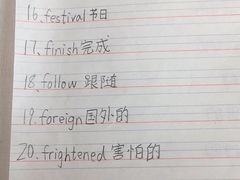 16.festival节日
17.finish完成
18.follow 跟随
19.foreign国外的
20.frightened 害怕的